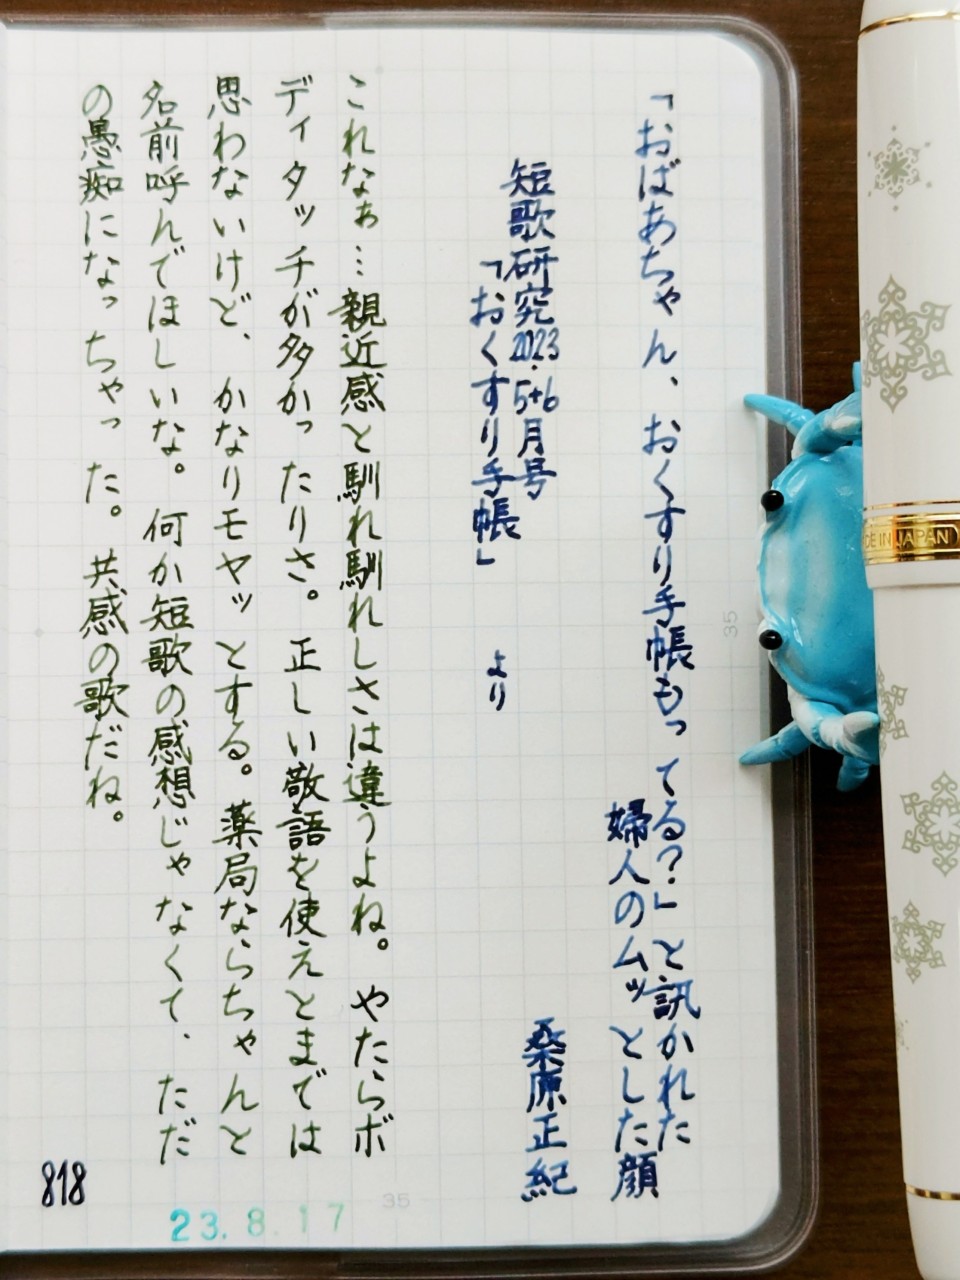 「おばあちゃん、おくすり手帳もってる?」と訊かれた
婦人のムッとした顔
桑原正紀
短歌研究2023.5+6月号
「おくすり手帳」 より
これなぁ…親近感と馴れ馴れしさは違うよね。やたらボ
ディタッチが多かったりさ。正しい敬語を使えとまでは
思わないけど、かなりモヤッとする。薬局ならちゃんと
名前呼んでほしいな。何か短歌の感想じゃなくて、ただ
の愚痴になっちゃった。共感の歌だね。
818
23.8.17
35
35
DE IN JAPAN